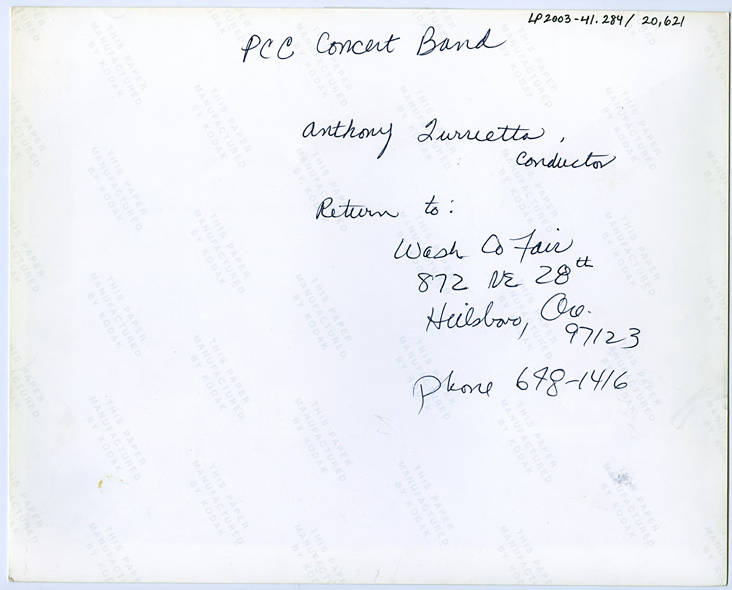 LP2003-41.284/ 20,621
PCC Concert Band
Anthony
Conductor
Return to:
Wash Co Fair
872 NE 28th
Hillsboro, Ore.
97123
Phone 648-1416
THIS PAPER
MANUFACTURED
BY KODAK